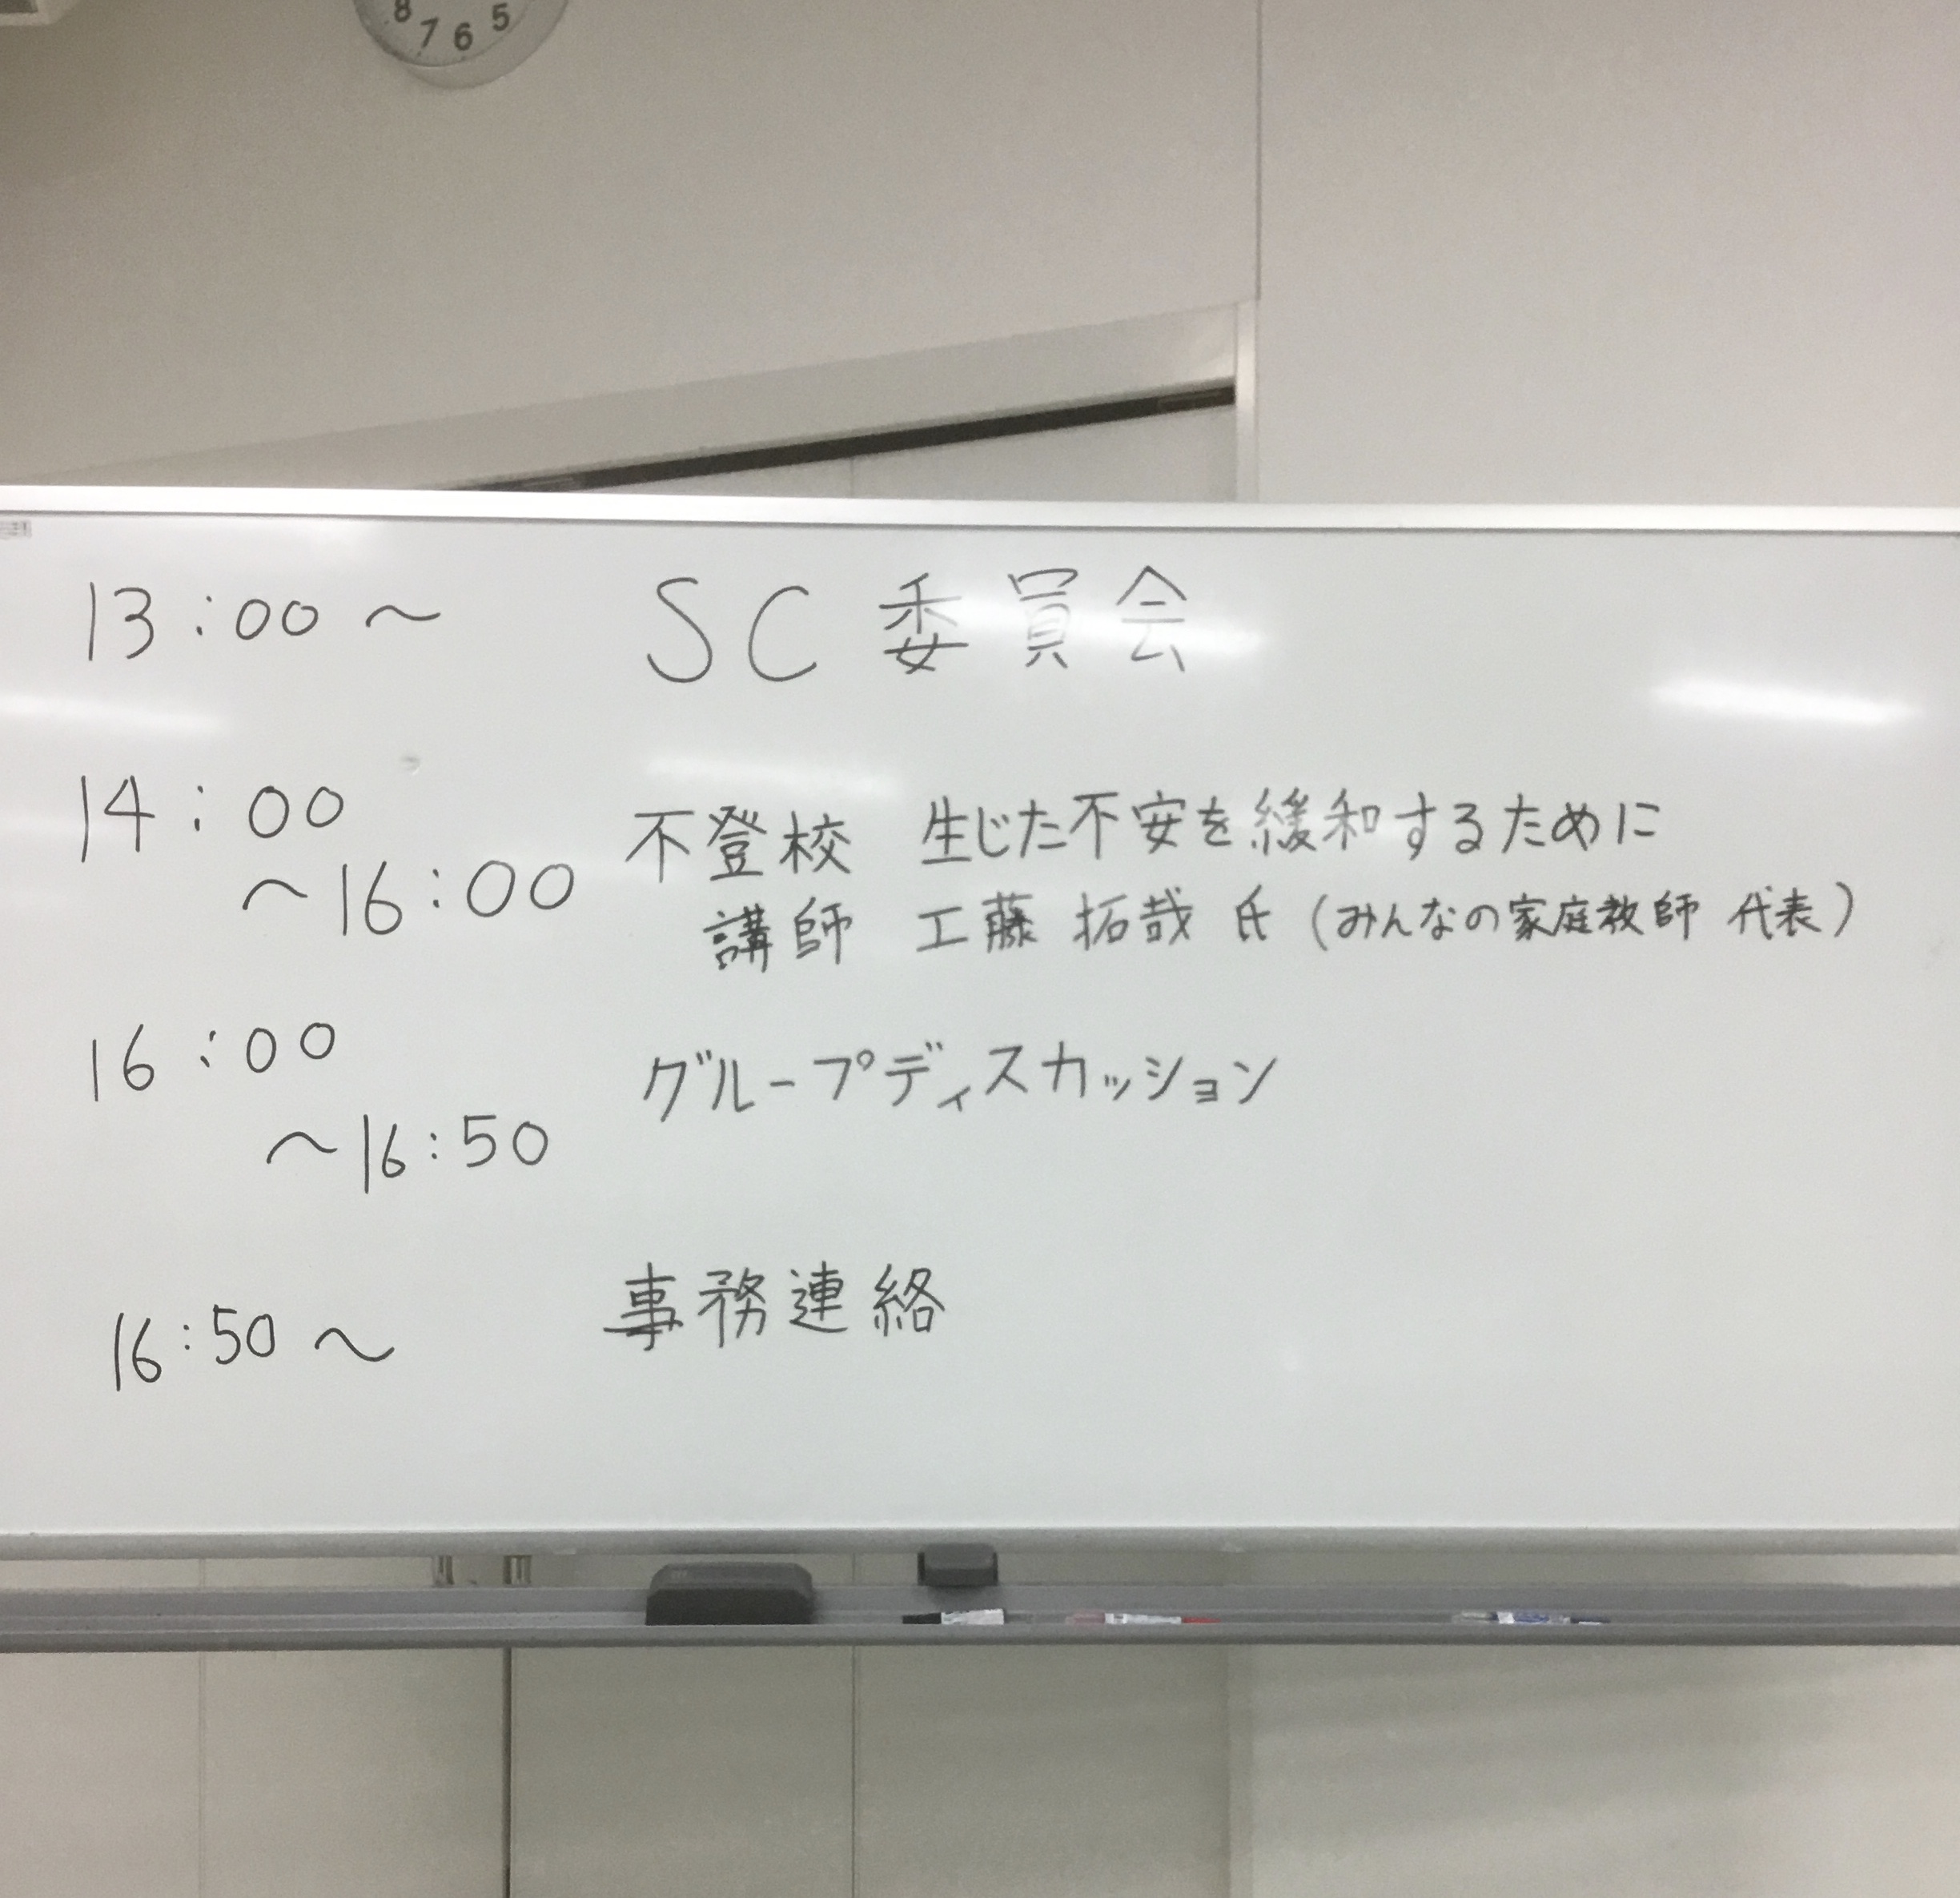 8 7 6 5
13:00～ SC委員会
14:00 不登校 生じた不安を緩和するために
～16:00 講師 工藤 拓哉 氏 (みんなの家庭教師 代表)
16:00 グループディスカッション
～16:50
16:50～ 事務連絡